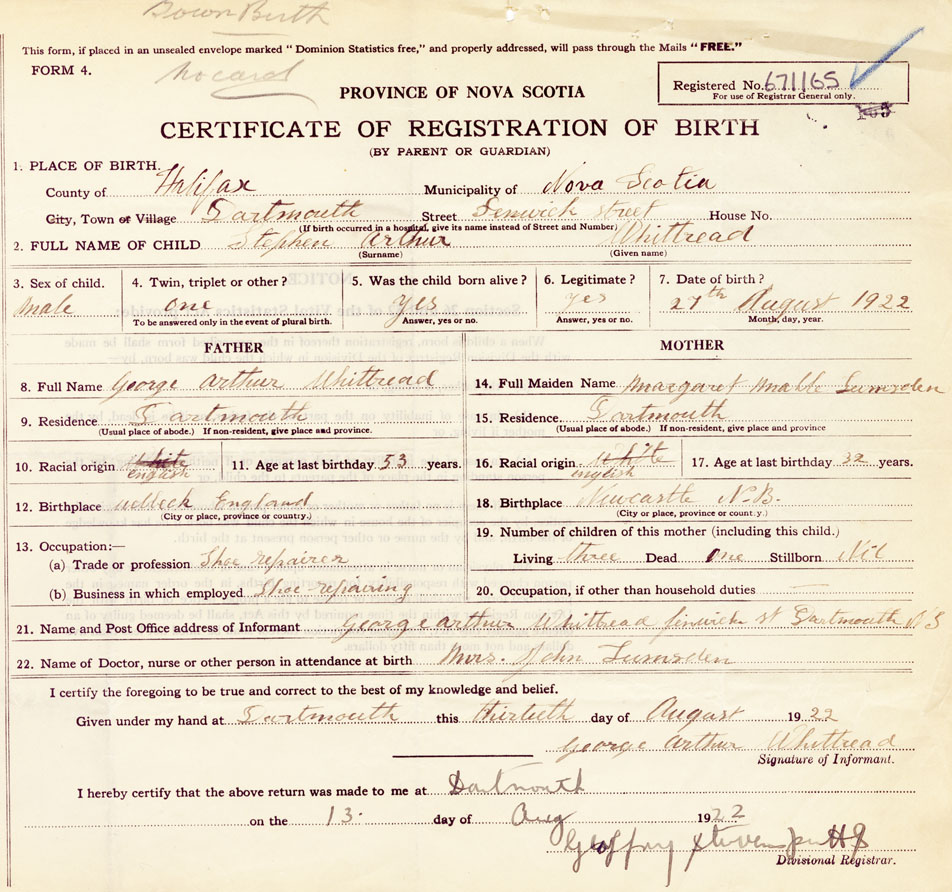 Down Birth
This form, if placed in an unsealed envelope marked "Dominion Statistics free," and properly addressed, will pass through the Mails "FREE."
FORM 4.
No card
Registered No. 671165
For use of Registrar General only.
PROVINCE OF NOVA SCOTIA
CERTIFICATE OF REGISTRATION OF BIRTH
(BY PARENT OR GUARDIAN)
1. PLACE OF BIRTH.
County of Halifax Municipality of Nova Scotia
City, Town or Village Dartmouth Street Fenwick Street House No.
(If birth occurred in a hospital, give its name instead of Street and Number)
2. FULL NAME OF CHILD Stephen Arthur Whittread
(Surname) (Given name)
3. Sex of child. 4. Twin, triplet or other? 5. Was the child born alive? 6. Legitimate? 7. Date of birth?
male one yes yes 27th August 1922
To be answered only in the event of plural birth. Answer, yes or no. Answer, yes or no. Month, day, year.
FATHER
8. Full Name George Arthur Whittread
9. Residence Dartmouth
(Usual place of abode.) If non-resident, give place and province.
10. Racial origin White english 11. Age at last birthday 53 years.
12. Birthplace England
(City or place, province or country.)
13. Occupation:—
(a) Trade or profession Shoe repairer
(b) Business in which employed Shoe repairing
MOTHER
14. Full Maiden Name Margaret Lumsden
15. Residence Dartmouth
(Usual place of abode.) If non-resident, give place and province
16. Racial origin White english 17. Age at last birthday 32 years.
18. Birthplace Newcastle N.B.
(City or place, province or country.)
19. Number of children of this mother (including this child.)
Living three Dead One Stillborn Nil
20. Occupation, if other than household duties
21. Name and Post Office address of Informant George arthur Whittread fenwick st Dartmouth N S
22. Name of Doctor, nurse or other person in attendance at birth Mrs. John Lumsden
I certify the foregoing to be true and correct to the best of my knowledge and belief.
Given under my hand at Dartmouth this thirtieth day of August 1922
George Arthur Whittread
Signature of Informant.
I hereby certify that the above return was made to me at Dartmouth
on the 13. day of Aug 1922
Geoffry Stevens
Divisional Registrar.